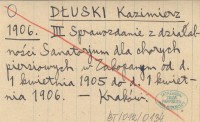 DŁUSKI Kazimierz
1906. III Sprawozdanie z działal-
ności Sanatorjum dla chorych
piersiowych w Zakopanem od d.
1 kwietnia 1905 do d. 1 kwiet-
nia 1906. — Kraków.